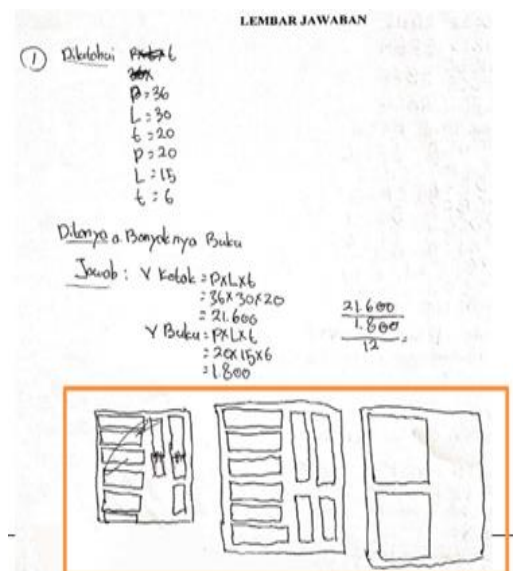 LEMBAR JAWABAN
① Diketahui
P = 36
L = 30
t = 20
P = 20
L = 15
t = 6
Ditanya a. Banyaknya Buku
Jawab : V Kotak = PxLxt
= 36x30x20
= 21.600
V Buku = PxLxt
= 20x15x6
= 1.800
21.600
1.800
12